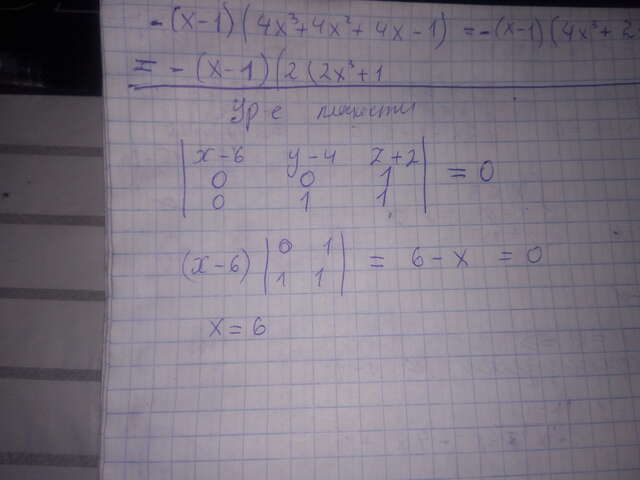 -(x-1)(4x³+4x²+4x-1) = -(x-1)(4x³+2
= -(x-1)(2(2x³+1
Ур-е плоскости
| x-6 y-4 z+2 |
| 0 0 1 | = 0
| 0 1 1 |
(x-6) | 0 1 | = 6-x = 0
| 1 1 |
x = 6